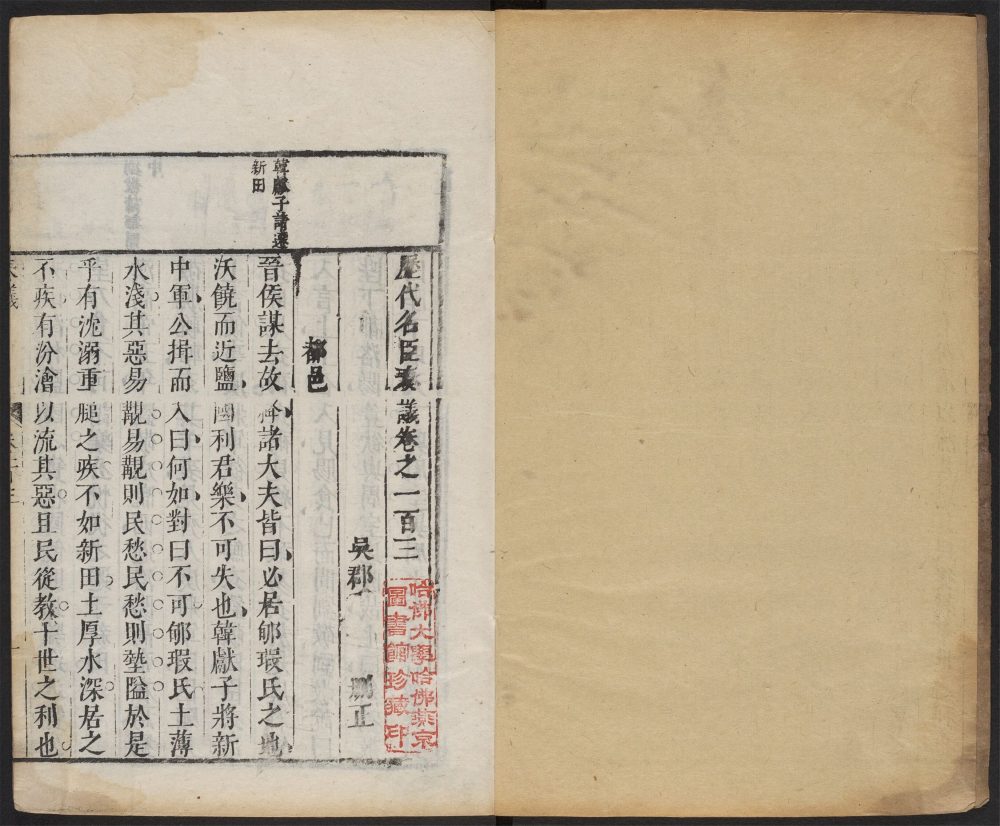 歷代名臣奏議卷之一百三
吳郡
鵬正
哈佛大學哈佛燕京
圖書館珍藏印
都邑
韓獻子請遷
新田
晉侯謀去故絳諸大夫皆曰必居郇瑕氏之地
沃饒而近鹽國利君樂不可失也韓獻子將新
中軍公揖而入曰何如對曰不可郇瑕氏土薄
水淺其惡易覯易覯則民愁民愁則墊隘於是
乎有沈溺重膇之疾不如新田土厚水深居之
不疾有汾澮以流其惡且民從教十世之利也